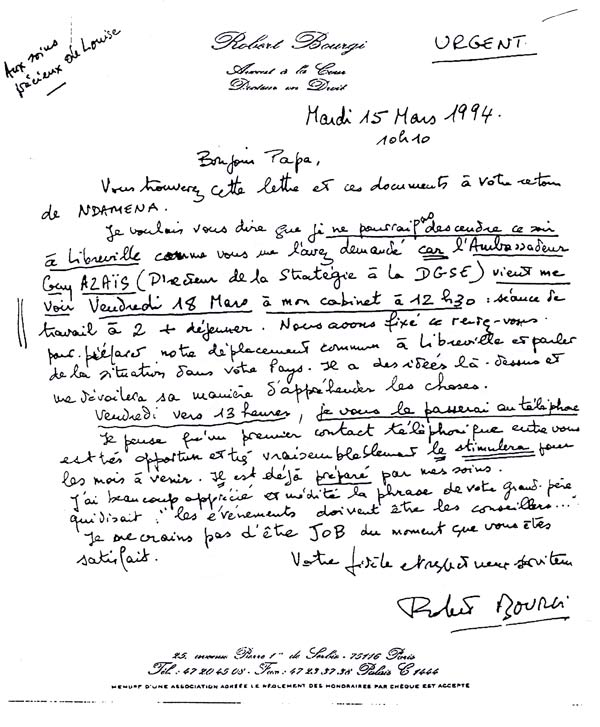 Aux soins
précieux de Louise
Robert Bourgi
URGENT
Avocat à la Cour
Docteur en Droit
Mardi 15 Mars 1994.
10h10
Bonjour Papa,
Vous trouverez cette lettre et ces documents à votre retour
de NDAMENA.
Je voulais vous dire que je ne pourrai pas descendre ce soir
à Libreville comme vous me l'avez demandé car l'Ambassadeur
Guy AZAÏS (Directeur de la Stratégie à la DGSE) vient me
voir Vendredi 18 Mars à mon cabinet à 12h30 : séance de
travail à 2 + déjeuner. Nous avons fixé ce rendez-vous
pour préparer notre déplacement commun à Libreville et parler
de la situation dans votre Pays. Il a des idées là-dessus et
me dévoilera sa manière d'appréhender les choses.
Vendredi vers 13 heures, je vous le passerai au téléphone
Je pense qu'un premier contact téléphonique entre vous
est très opportun et très vraisemblablement le stimulera pour
les mois à venir. Il est déjà préparé par mes soins.
J'ai beaucoup apprécié et médité la phrase de votre grand-père
qui disait : "les événements doivent être les conseillers..."
Je ne crains pas d'être JOB du moment que vous êtes
satisfait.
Votre fidèle et respectueux serviteur
Robert BOURGI
25, avenue Pierre 1er de Serbie - 75116 Paris
Tél. : 47 20 45 08 - Fax : 47 23 37 38 Palais C 1444
MEMBRE D'UNE ASSOCIATION AGRÉÉE LE RÈGLEMENT DES HONORAIRES PAR CHÈQUE EST ACCEPTÉ